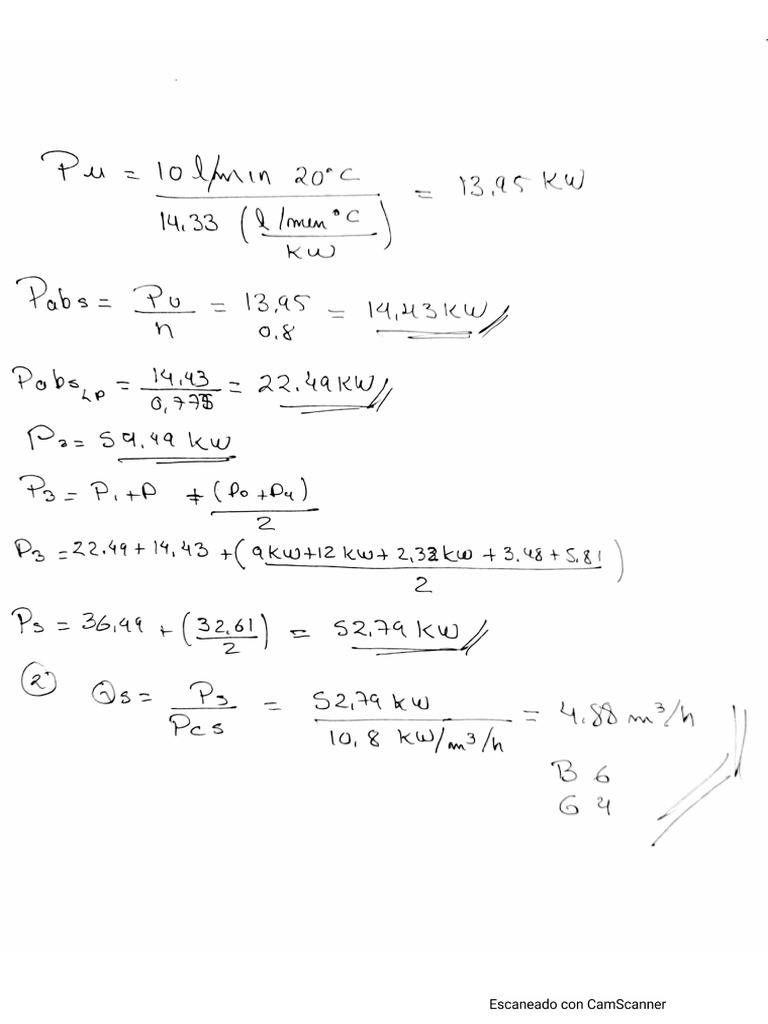 Pu = 10 l/min 20°C / 14.33 (l/men°C / kw) = 13,95 KW
Pabs = Pu / n = 13,95 / 0.8 = 14,43 KW
Pabs LP = 14,43 / 0,775 = 22.49 KW
P2 = 59,49 KW
P3 = P1 + P + (P0 + P4) / 2
P3 = 22.49 + 14,43 + (9 KW + 12 KW + 2,32 KW + 3.48 + 5.81 / 2)
Ps = 36,49 + (32,61 / 2) = 52,79 KW
2) Qs = Ps / Pcs = 52,79 kw / 10,8 KW/m³/h = 4.88 m³/h
B 6
G 4
Escaneado con CamScanner